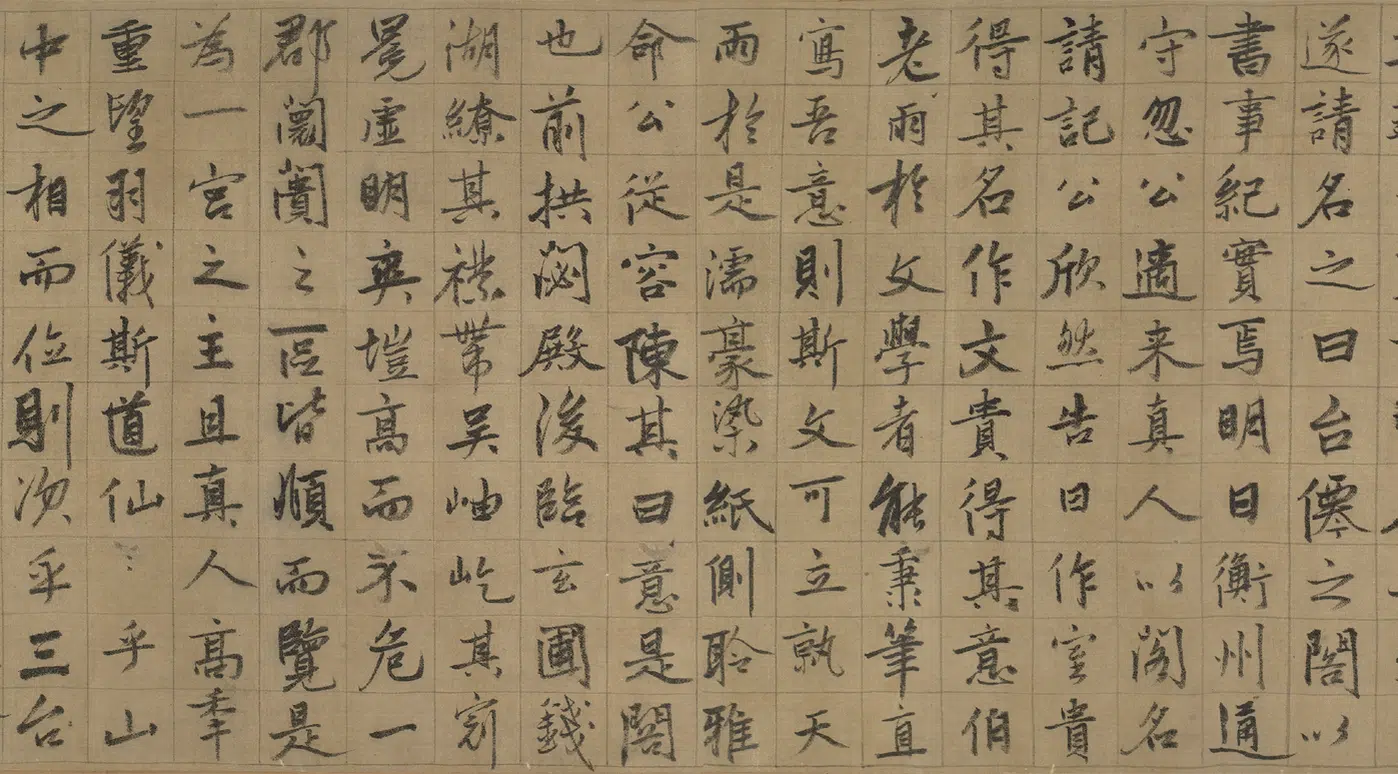 遂請名之曰台僊之閣以
書事紀實焉明日衡州道
守忽公適来真人以閣名
請記公欣然告曰作室貴
得其名作文貴得其意伯
老雨於文學者能秉筆直
寫吾意則斯文可立孰天
雨於是濡豪染紙側聆雅
命公從容陳其曰意是閣
也前拱閟殿後臨玄圃錢
湖繚其襟帶吴岫屹其窌
冕虚明爽塏高而不危一
郡闤闠之區皆順而覽是
為一宫之主且真人高秊
重望羽儀斯道仙〻乎山
中之相而位則次乎三台